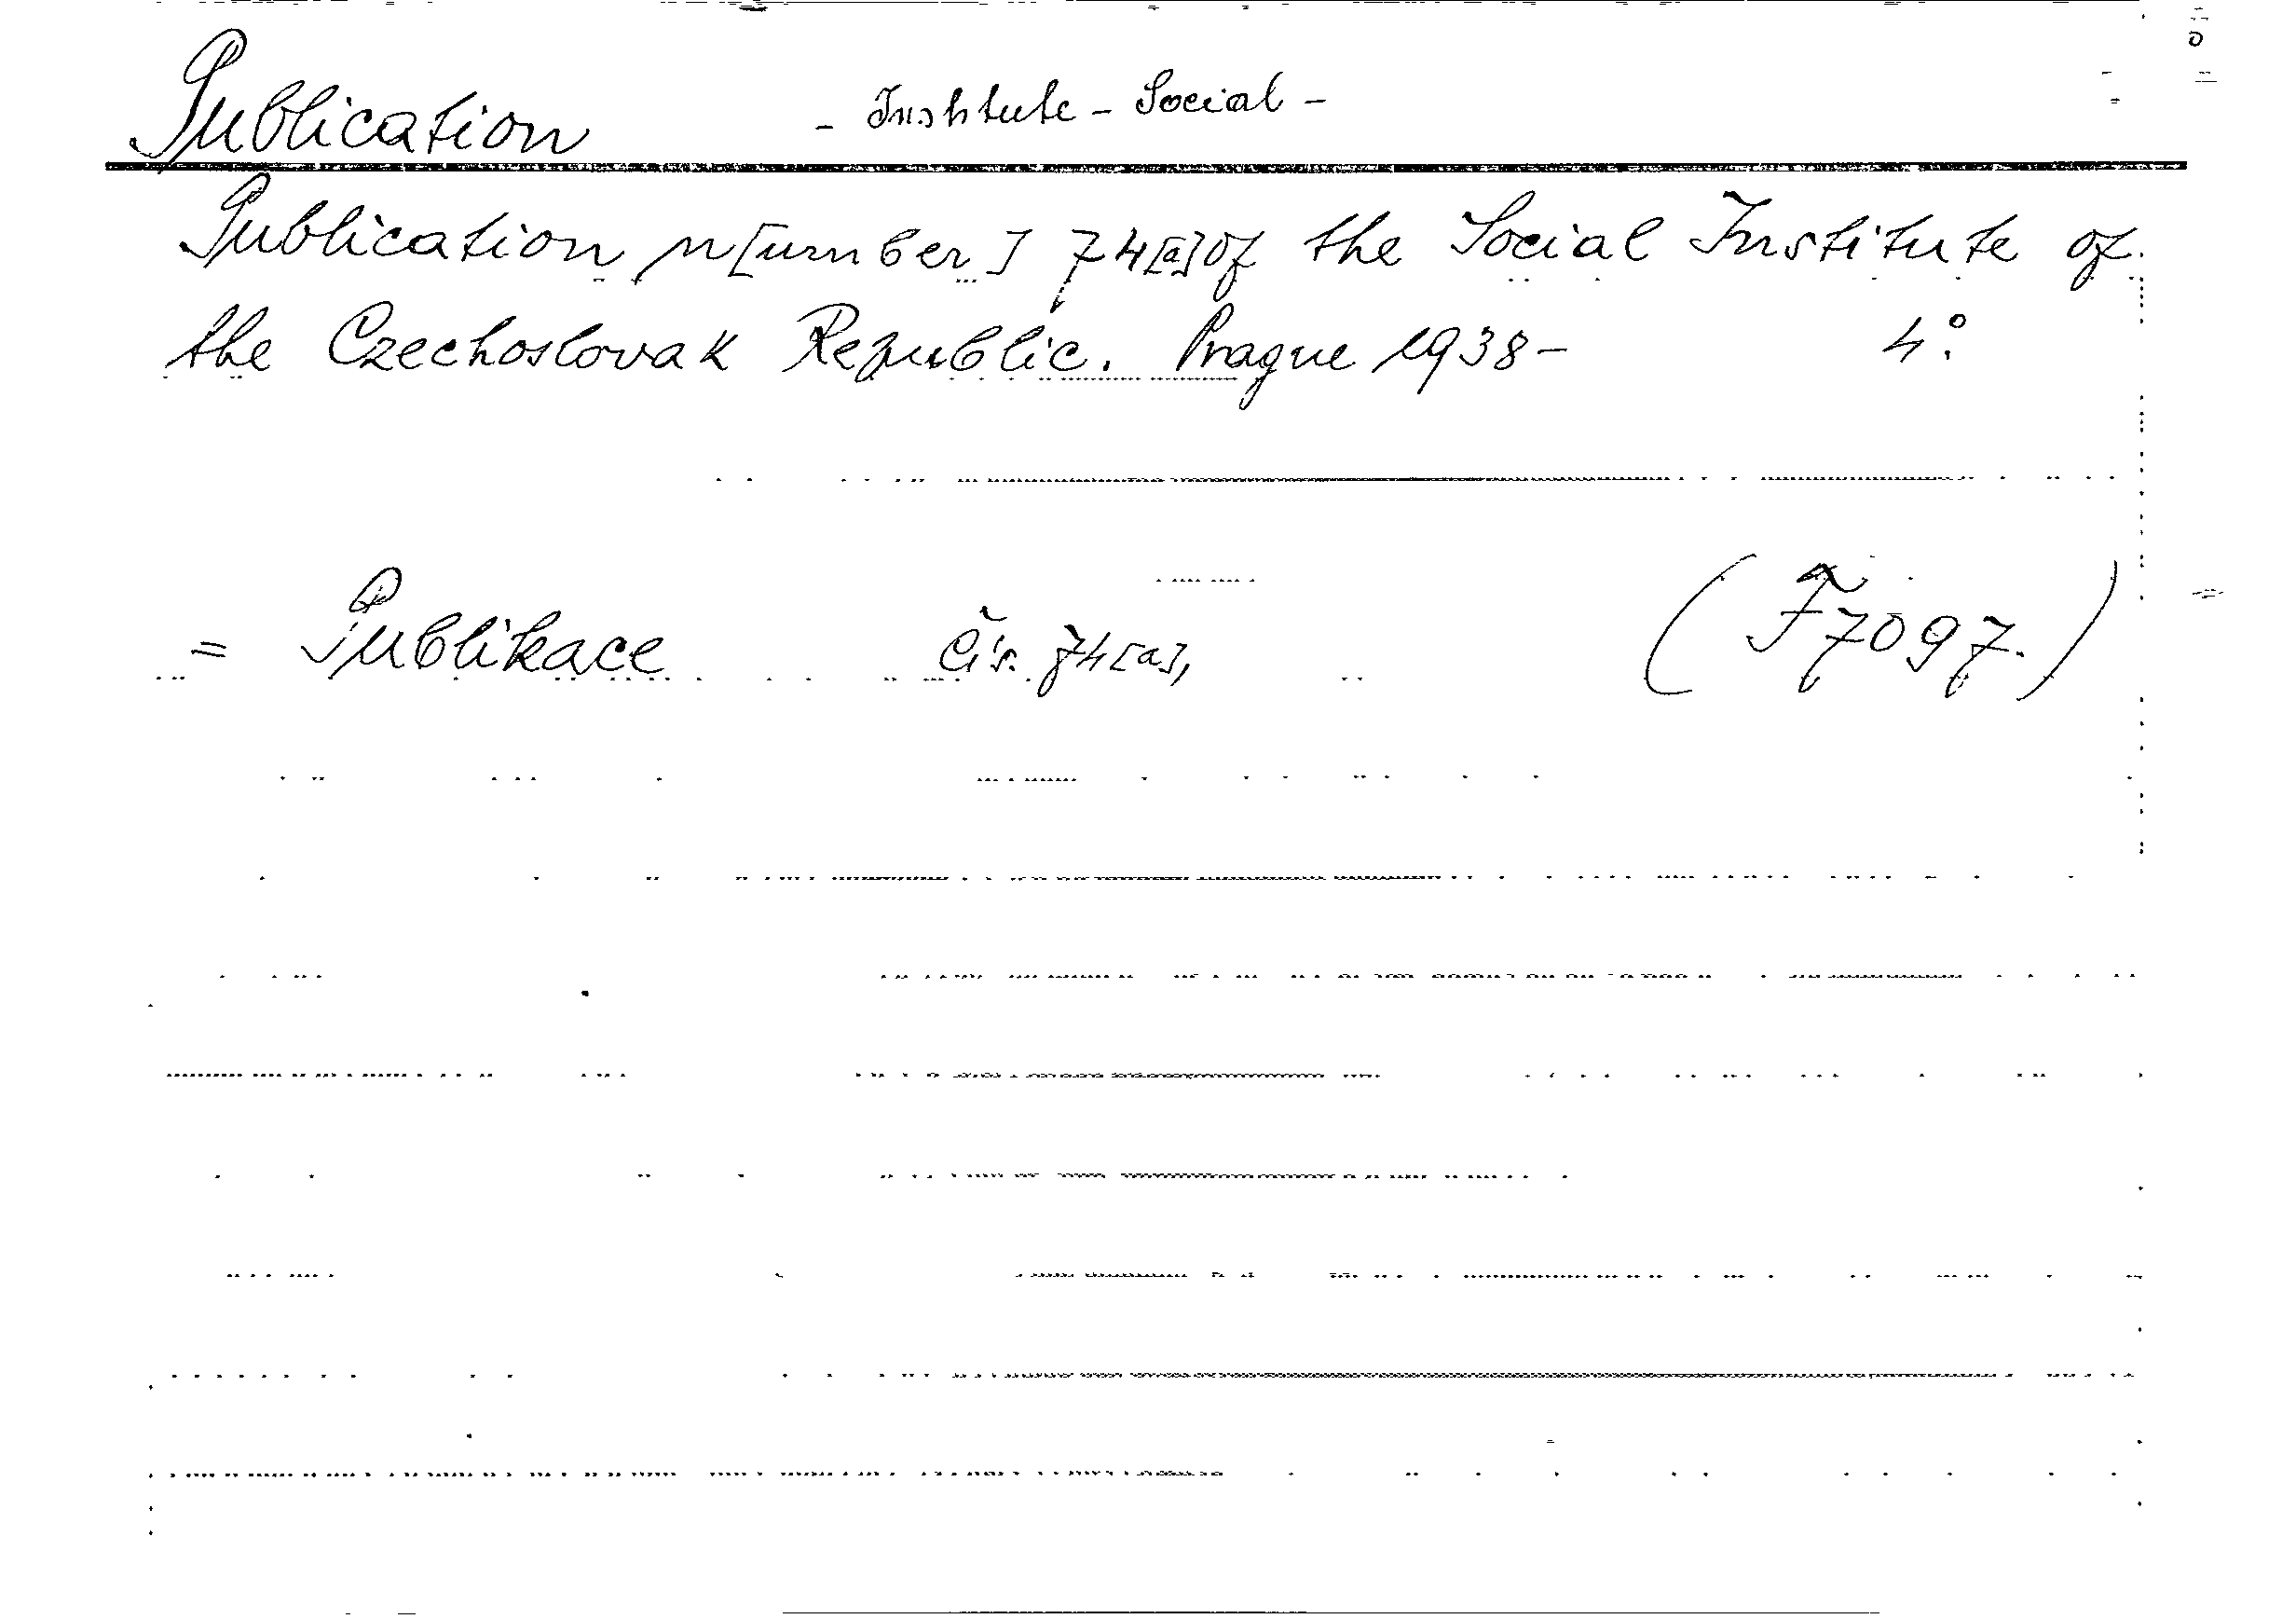 Publication - Institute - Social -
Publication n[umber] 74[a] of the Social Institute of
the Czechoslovak Republic. Prague 1938- 4°.
= Publikace čís. 74[a], (F7097.)